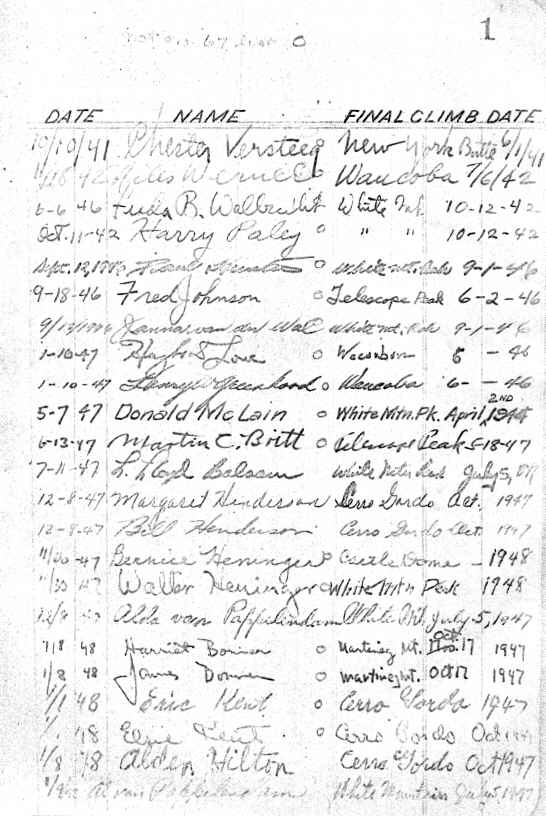 1
DATE NAME FINAL CLIMB DATE
10/10/41 Chester Versteeg New York Butte 6/1/41
Niles Werner Waucoba 7/6/42
6-6 46 Freda B. Walbrecht White Mt 10-12-42
Oct. 11-42 Harry Paley " " 10-12-42
Sept. 12, White Mt. Peak 9-1-46
9-18-46 Fred Johnson Telescope Peak 6-2-46
van der Wal White Mt. Peak 9-1-46
1-10-47 Hugh S Love 6 - 46
1-10-47 Waucoba 6- -46
5-7 47 Donald McLain White Mtn. Pk. April, 2ND
6-13-47 Martin C. Britt Telescope Peak 5-18-47
7-11-47 L. Lloyd Balsam White Mtn Peak July 5,
12-8-47 Margaret Henderson Cerro Gordo Oct. 1947
12-8-47 Bill Henderson Cerro Gordo Oct 1947
11/30 -47 Bernice Heninger Castle Dome - 1948
11/30 47 Walter Heninger White Mtn Peak 1948
47 Alda van Pappelendam White Mtn July 5, 1947
1/8 48 Harriet Martinez Mt. Oct. 17 1947
1/8 48 James Martinez Mt. Oct 17 1947
1/1 48 Eric Kent Cerro Gordo 1947
1/1 48 Elsie Kent Cerro Gordo Oct 1947
1/8 48 Alden Hilton Cerro Gordo Oct 1947
Al van Pappelendam White Mountain July 5 1947